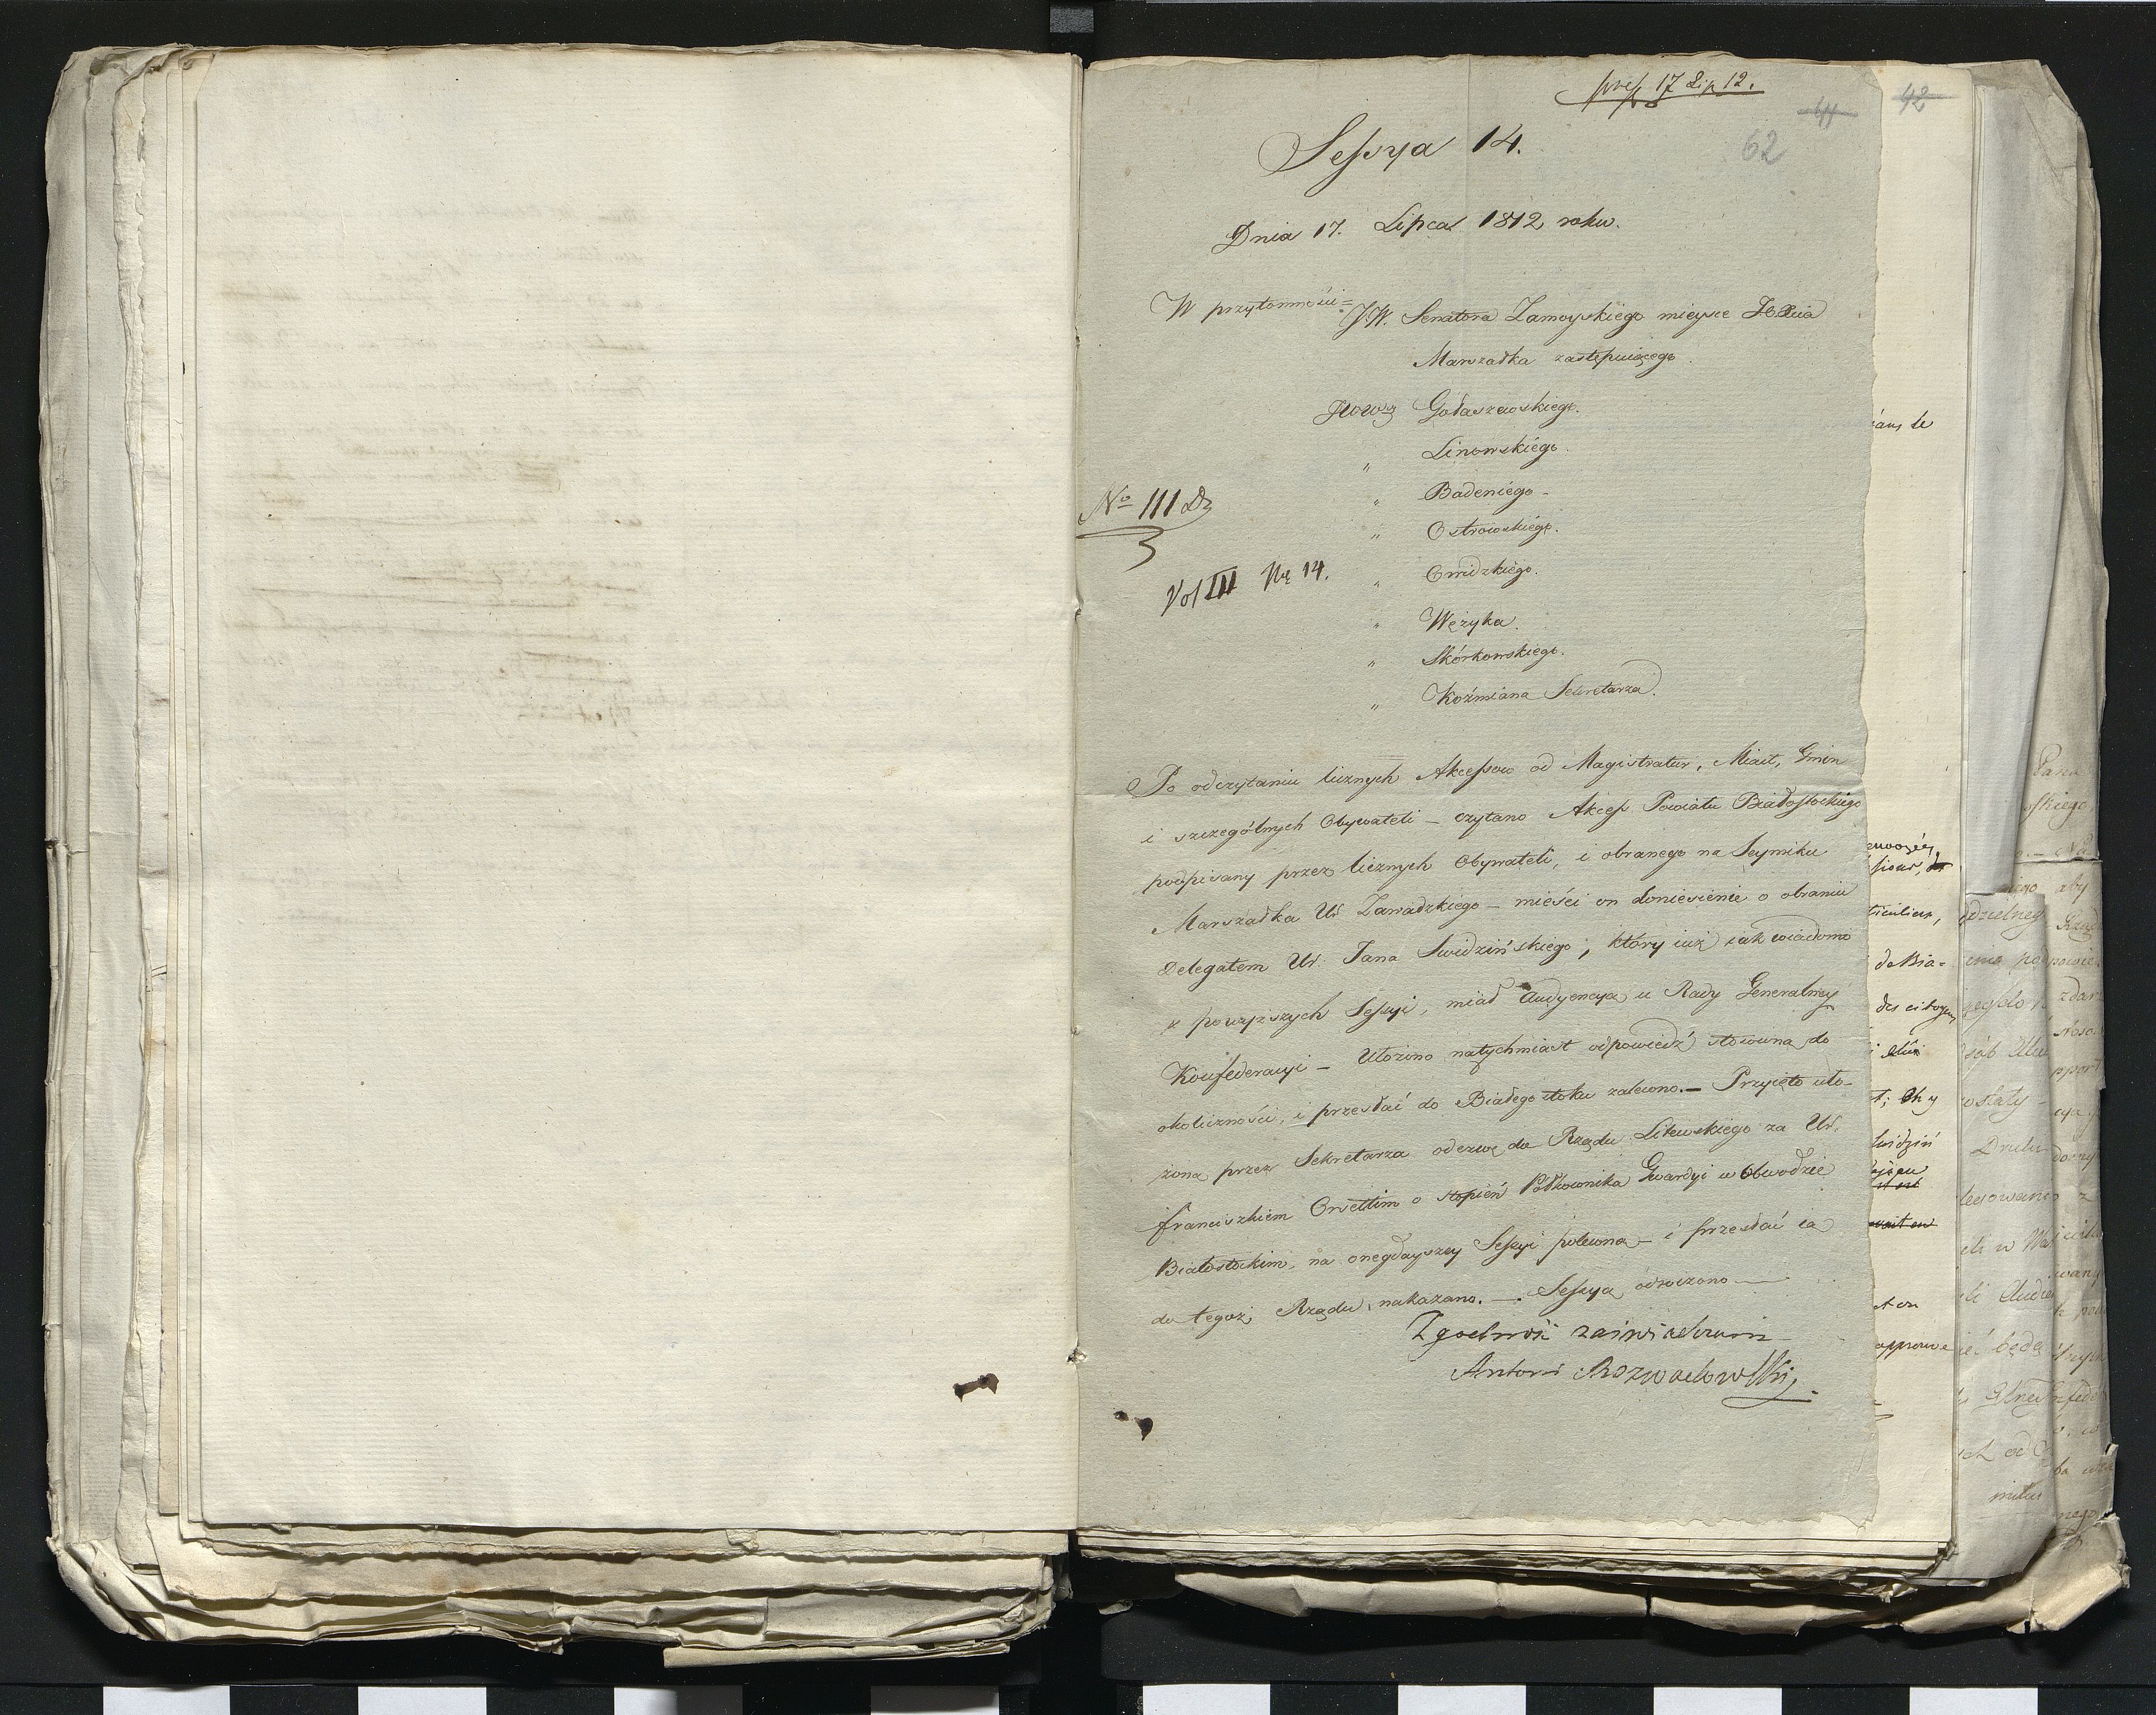 pres. 17 Lip 12.
44
42
62
Sessya 14.
Dnia 17. Lipca 1812 roku.
W przytomności = JW. Senatora Zamoyskiego mieysce JO Xcia
Marszałka zastępuiącego.
JWWch Gołaszewskiego.
" Linowskiego.
" Badeniego -
" Ostrowskiego.
" Owidzkiego.
" Wężyka.
" Skórkowskiego.
" Koźmiana Sekretarza.
No 111 D
Vol III No 14.
Po odczytaniu licznych Akcessow od Magistratur, Miast, Gmin
i szczególnych Obywateli - czytano Akcess Powiatu Białostockiego
podpisany przez licznych Obywateli, i obranego na Seymiku
Marszałka Ur Zawadzkiego - mieści on doniesienie o obraniu
Delegatem Ur: Jana Swidzińskiego; który iuż iak wiadomo
z powyższych Sessyi, miał Audyencyą u Rady Generalney
Konfederacyi - Ułożono natychmiast odpowiedź stosowną do
okoliczności, i przesłać do Białegostoku zalecono. - Przyięto uło-
żoną przez Sekretarza odezwę do Rządu Litewskiego za Ur.
Franciszkiem Orsettim o stopień Półkownika Gwardyi w Obwodzie
Białostockim, na onegdayszey Sessyi poleconą - i przesłać ią
do tegoż Rządu, nakazano. - Sessyą odroczono -
Zgodność zaświadczam
Antoni Rozwadowski